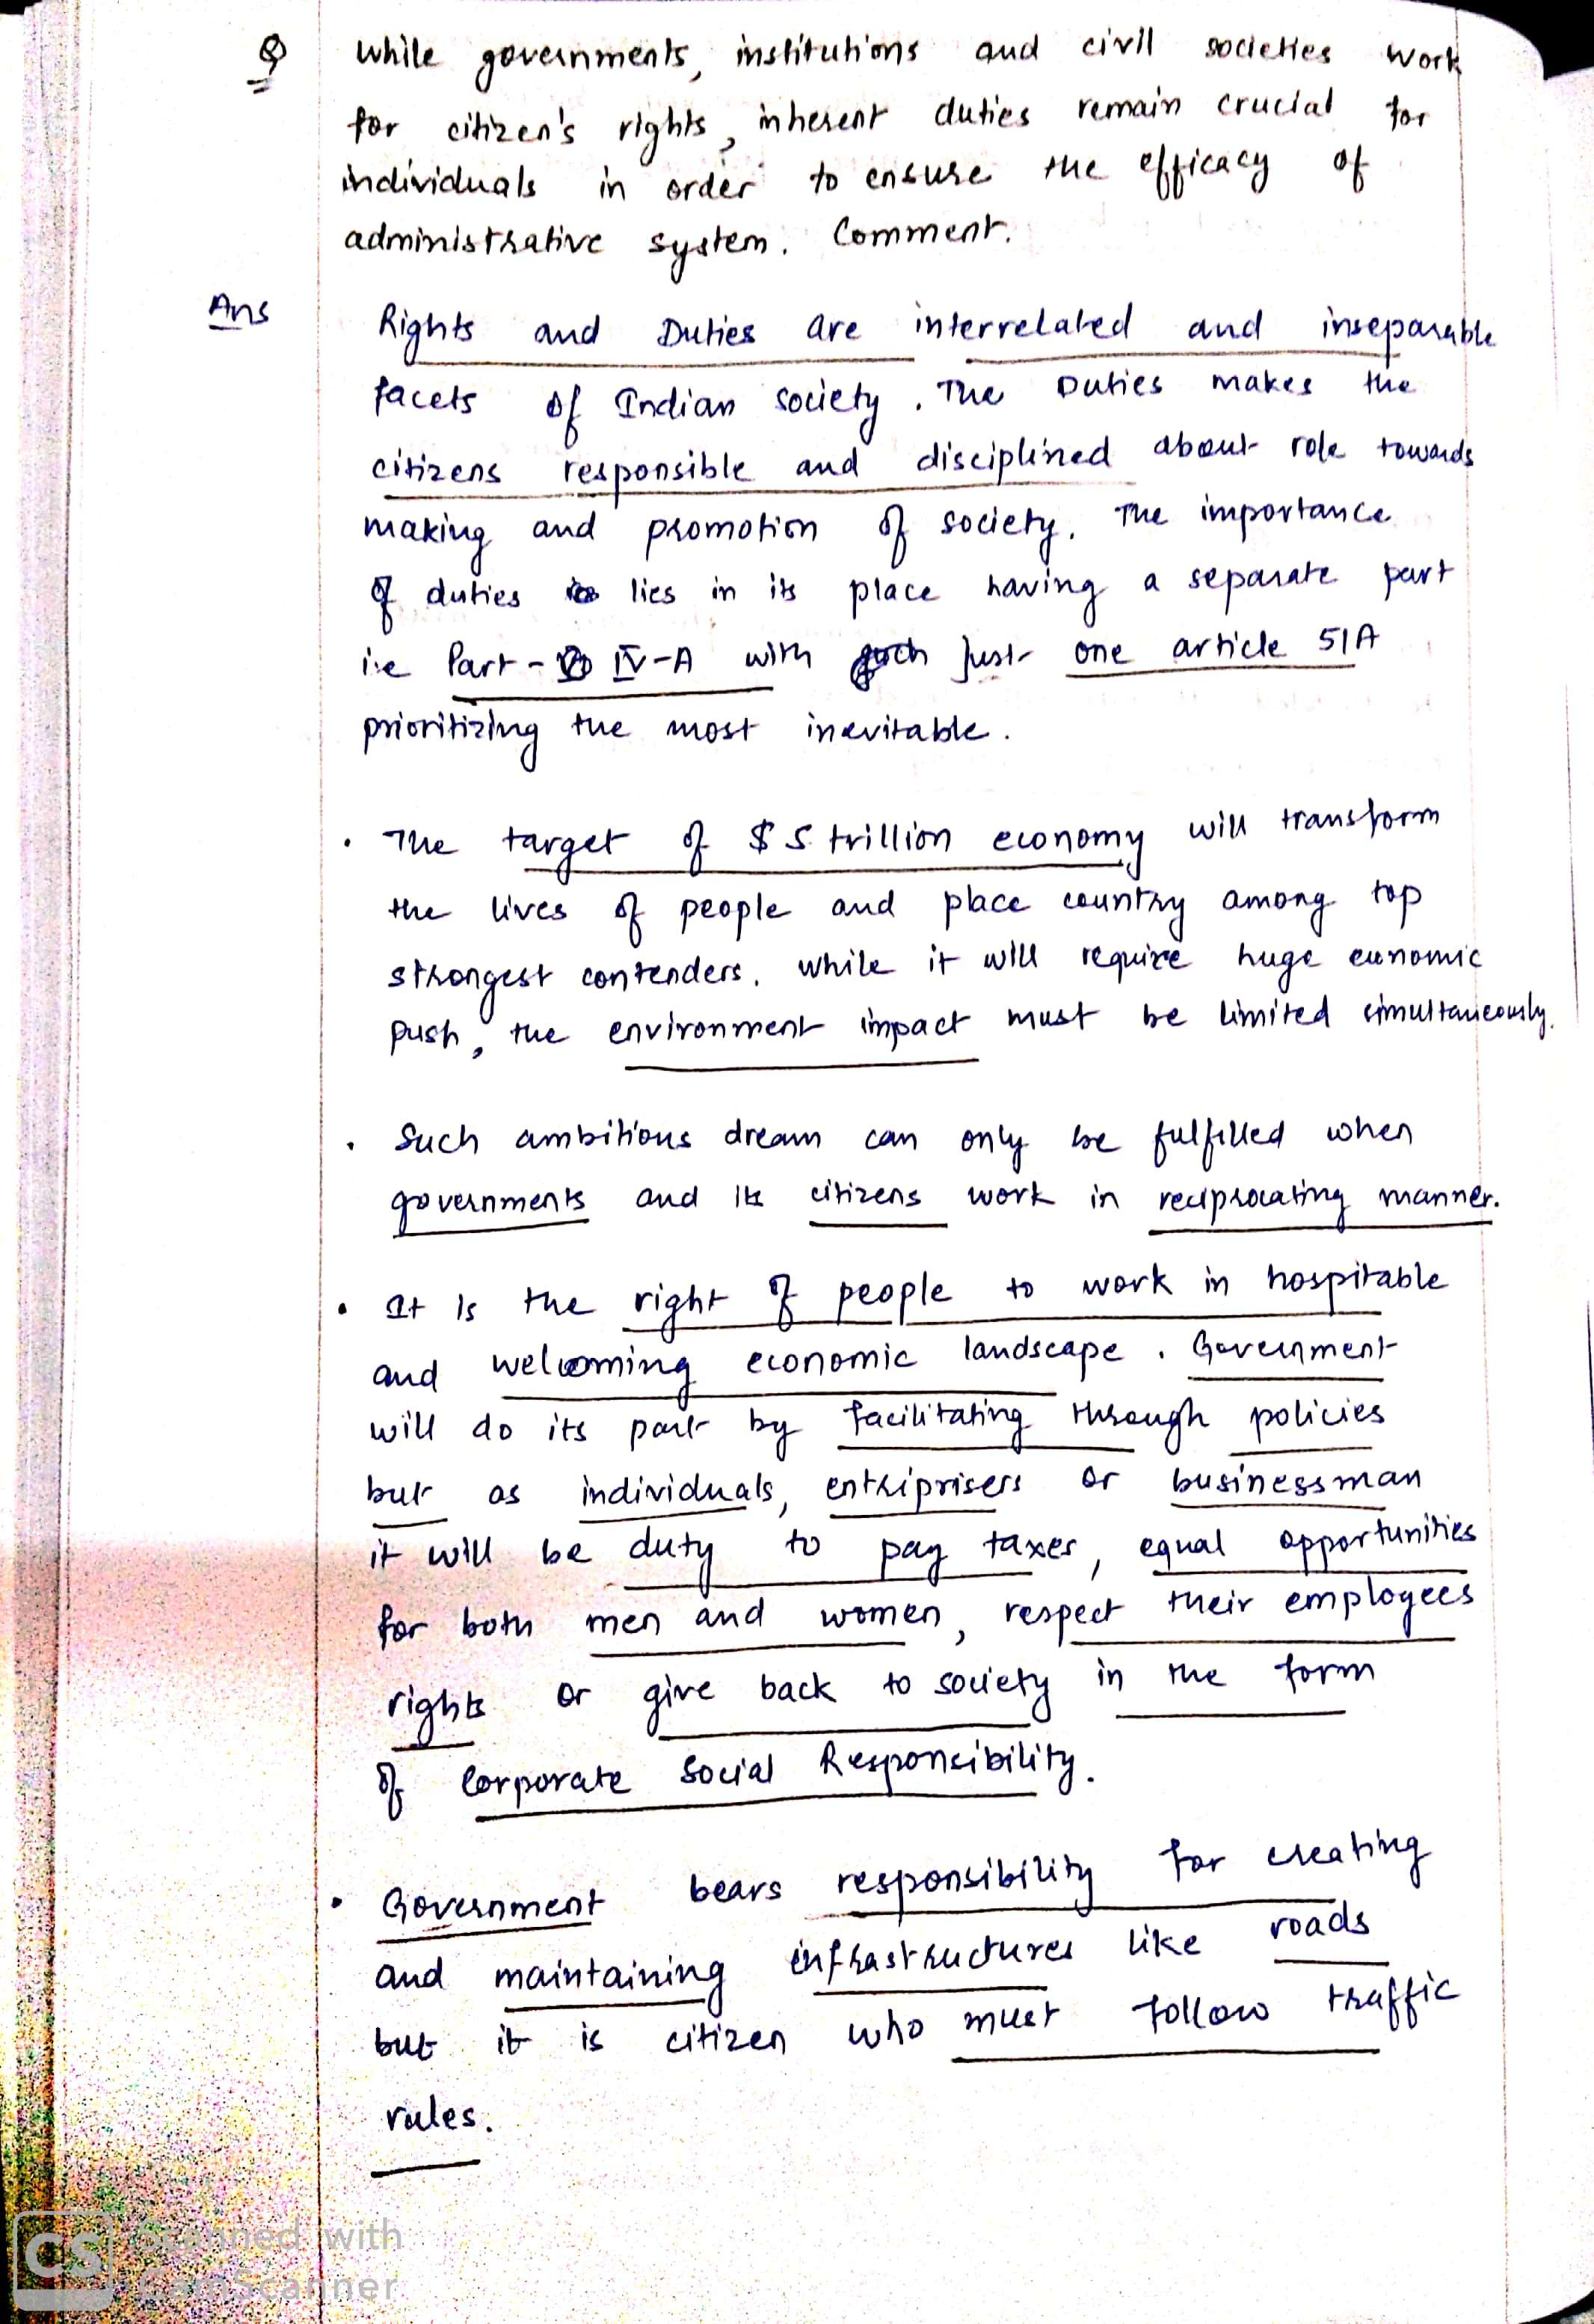 Q While governments, institutions and civil societies work
for citizen's rights, inherent duties remain crucial for
individuals in order to ensure the efficacy of
administrative system. Comment.
Ans Rights and Duties are interrelated and inseparable
facets of Indian society. The Duties makes the
citizens responsible and disciplined about role towards
making and promotion of society. The importance
of duties lies in its place having a separate part
i.e Part - IV-A with just one article 51A
prioritizing the most inevitable.
• The target of $ 5 trillion economy will transform
the lives of people and place country among top
strongest contenders. While it will require huge economic
push, the environment impact must be limited simultaneously.
• Such ambitious dream can only be fulfilled when
governments and its citizens work in reciprocating manner.
• It is the right of people to work in hospitable
and welcoming economic landscape. Government
will do its part by facilitating through policies
but as individuals, entriprisers or businessman
it will be duty to pay taxes, equal opportunities
for both men and women, respect their employees
rights or give back to society in the form
of Corporate Social Responsibility.
• Government bears responsibility for creating
and maintaining infrastructures like roads
but it is citizen who must follow traffic
rules.
CS Scanned with
CamScanner